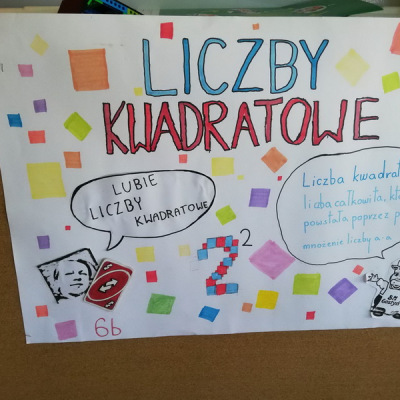 LICZBY
KWADRATOWE
LUBIE
LICZBY
KWADRATOWE
Liczba kwadrat
liczba całkowita, któ
powstała poprzez p
mnożenie liczby a·a
2²
6b